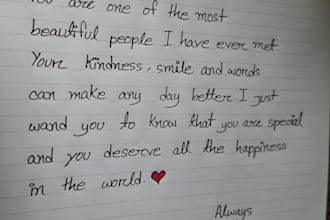 You are one of the most
beautiful people I have ever met
Your kindness, smile and words
can make any day better. I just
wand you to know that you are special
and you deserve all the happiness
in the world. ❤
Always